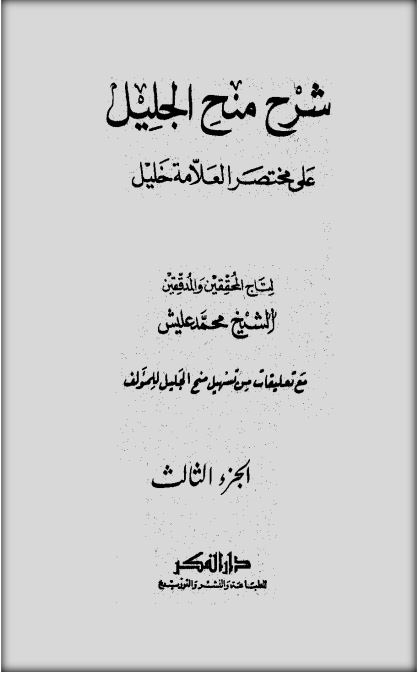 شرح منح الجليل
على مختصر العلّامة خليل
لتاج المحققين والمدققين
الشيخ محمد عليش
مع تعليقات من تسهيل منح الجليل للمؤلف
الجزء الثالث
دار الفكر
للطباعة والنشر والتوزيع